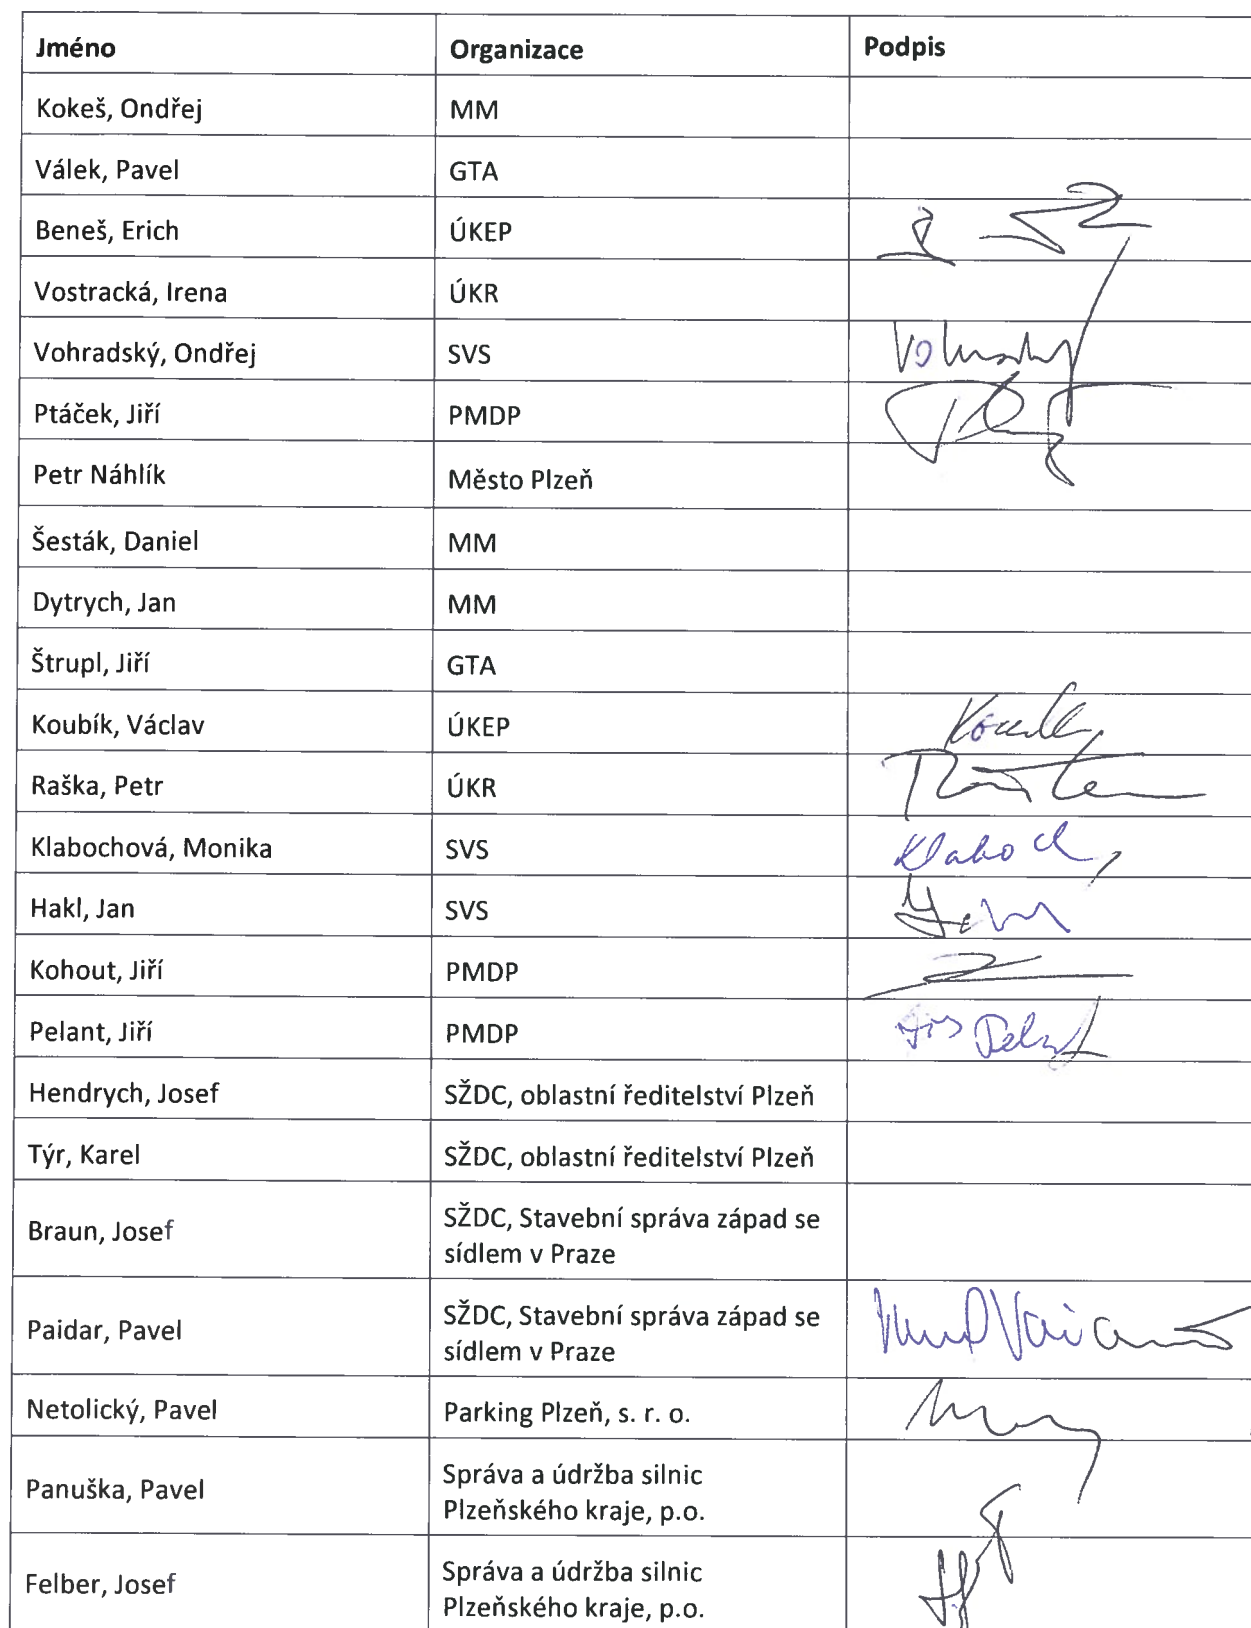 Jméno Organizace Podpis
Kokeš, Ondřej MM
Válek, Pavel GTA
Beneš, Erich ÚKEP
Vostracká, Irena ÚKR
Vohradský, Ondřej SVS
Ptáček, Jiří PMDP
Petr Náhlík Město Plzeň
Šesták, Daniel MM
Dytrych, Jan MM
Štrupl, Jiří GTA
Koubík, Václav ÚKEP
Raška, Petr ÚKR
Klabochová, Monika SVS
Hakl, Jan SVS
Kohout, Jiří PMDP
Pelant, Jiří PMDP
Hendrych, Josef SŽDC, oblastní ředitelství Plzeň
Týr, Karel SŽDC, oblastní ředitelství Plzeň
Braun, Josef SŽDC, Stavební správa západ se
sídlem v Praze
Paidar, Pavel SŽDC, Stavební správa západ se
sídlem v Praze
Netolický, Pavel Parking Plzeň, s. r. o.
Panuška, Pavel Správa a údržba silnic
Plzeňského kraje, p.o.
Felber, Josef Správa a údržba silnic
Plzeňského kraje, p.o.